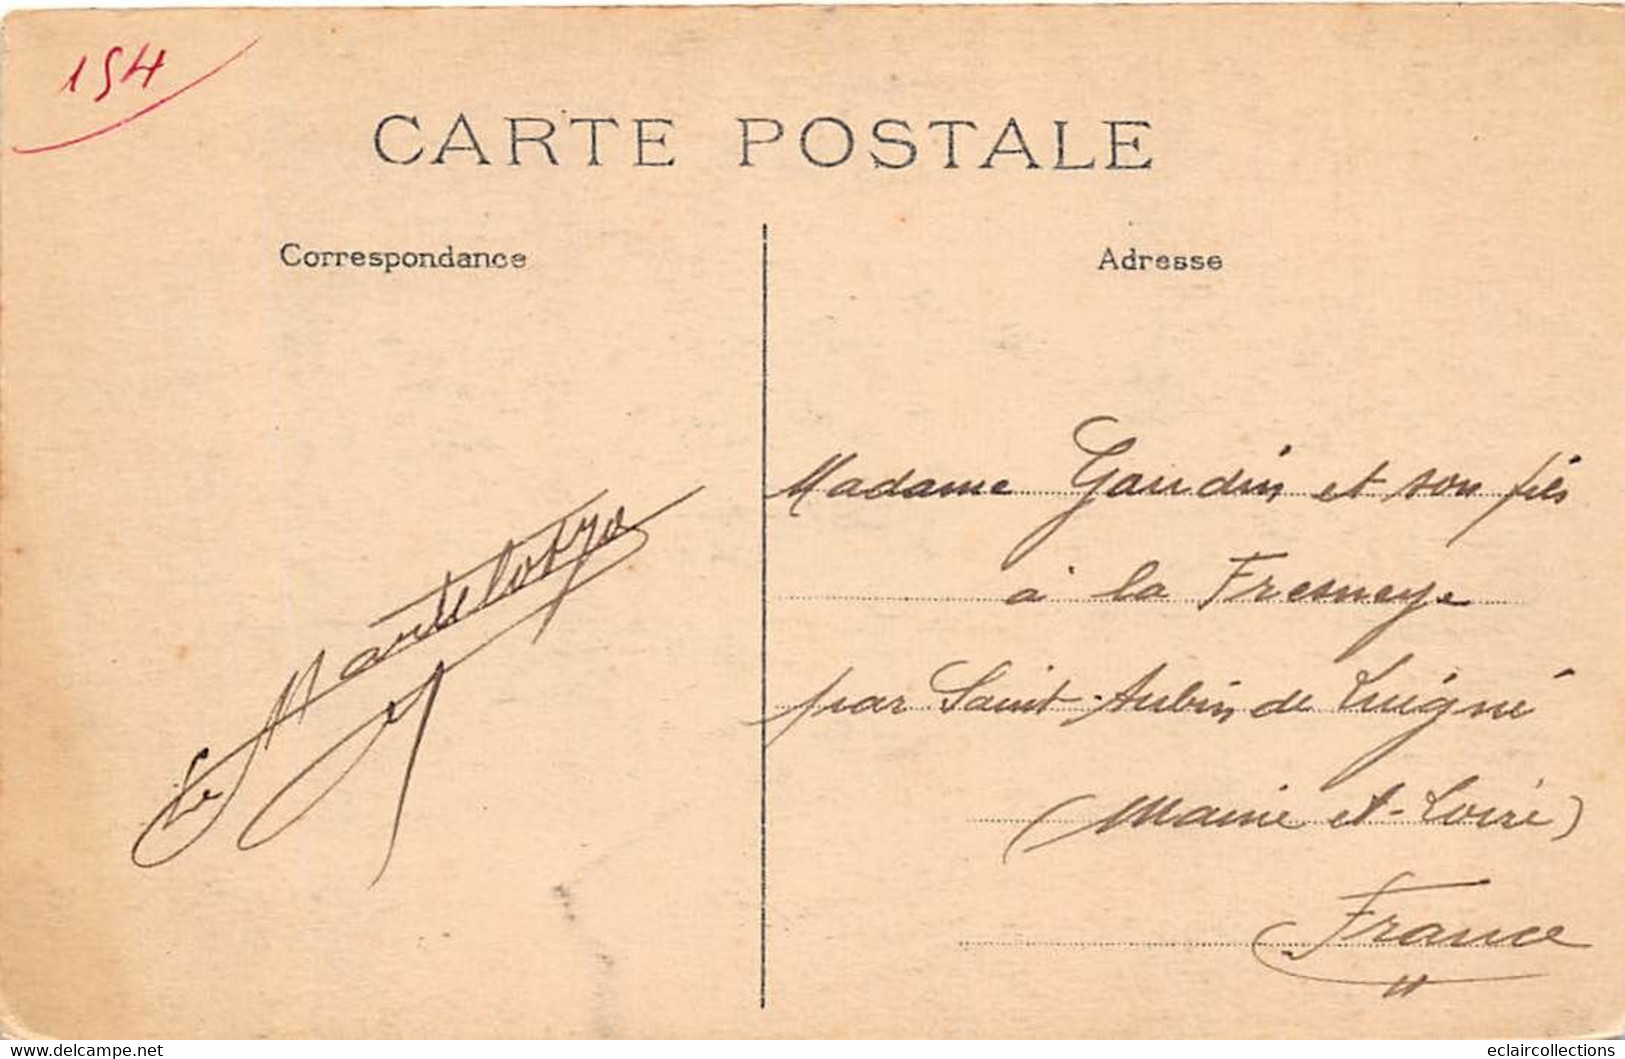 154
CARTE POSTALE
Correspondance
Adresse
Madame Gaudin et son fils
à la Fresnaye
par Saint-Aubin de Luigné
(Maine et-Loire)
France
www.delcampe.net
eclaircollections